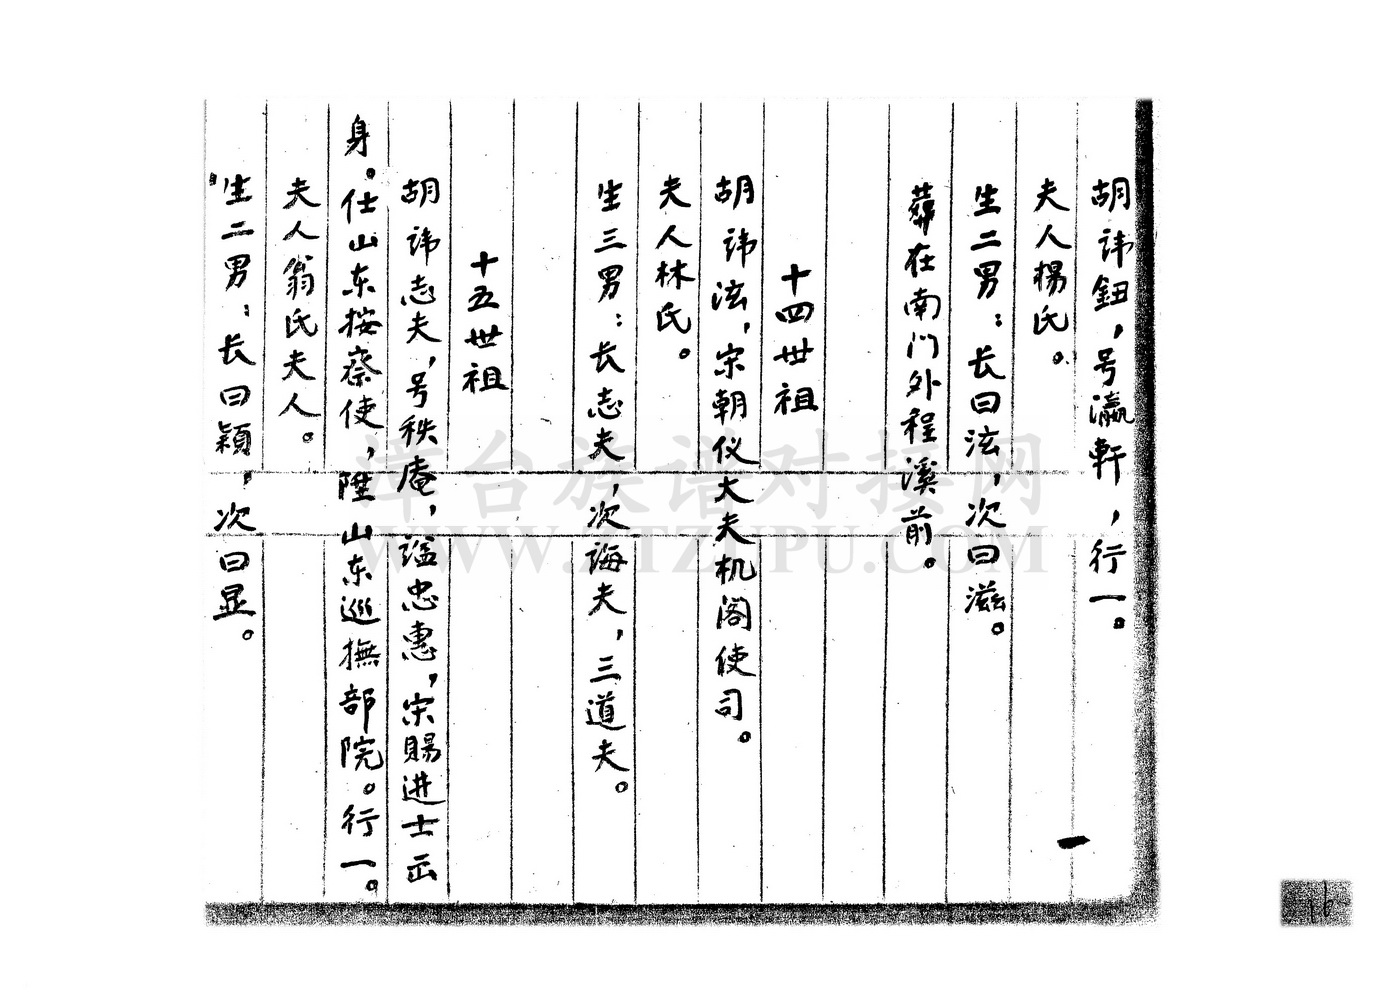 胡讳鈕，号瀛軒，行一。
夫人楊氏。
生二男：长曰泫，次曰滋。
葬在南门外程溪前。
十四世祖
胡讳泫，宋朝仪大夫机阁使司。
夫人林氏。
生三男：长志夫，次诲夫，三道夫。
十五世祖
胡讳志夫，号秩庵，谥忠惠，宋賜进士出
身。仕山东按察使，陞山东巡撫部院。行一。
夫人翁氏夫人。
生二男：长曰穎，次曰显。
漳台族谱对接网
WWW.ZTZUPU.COM
16